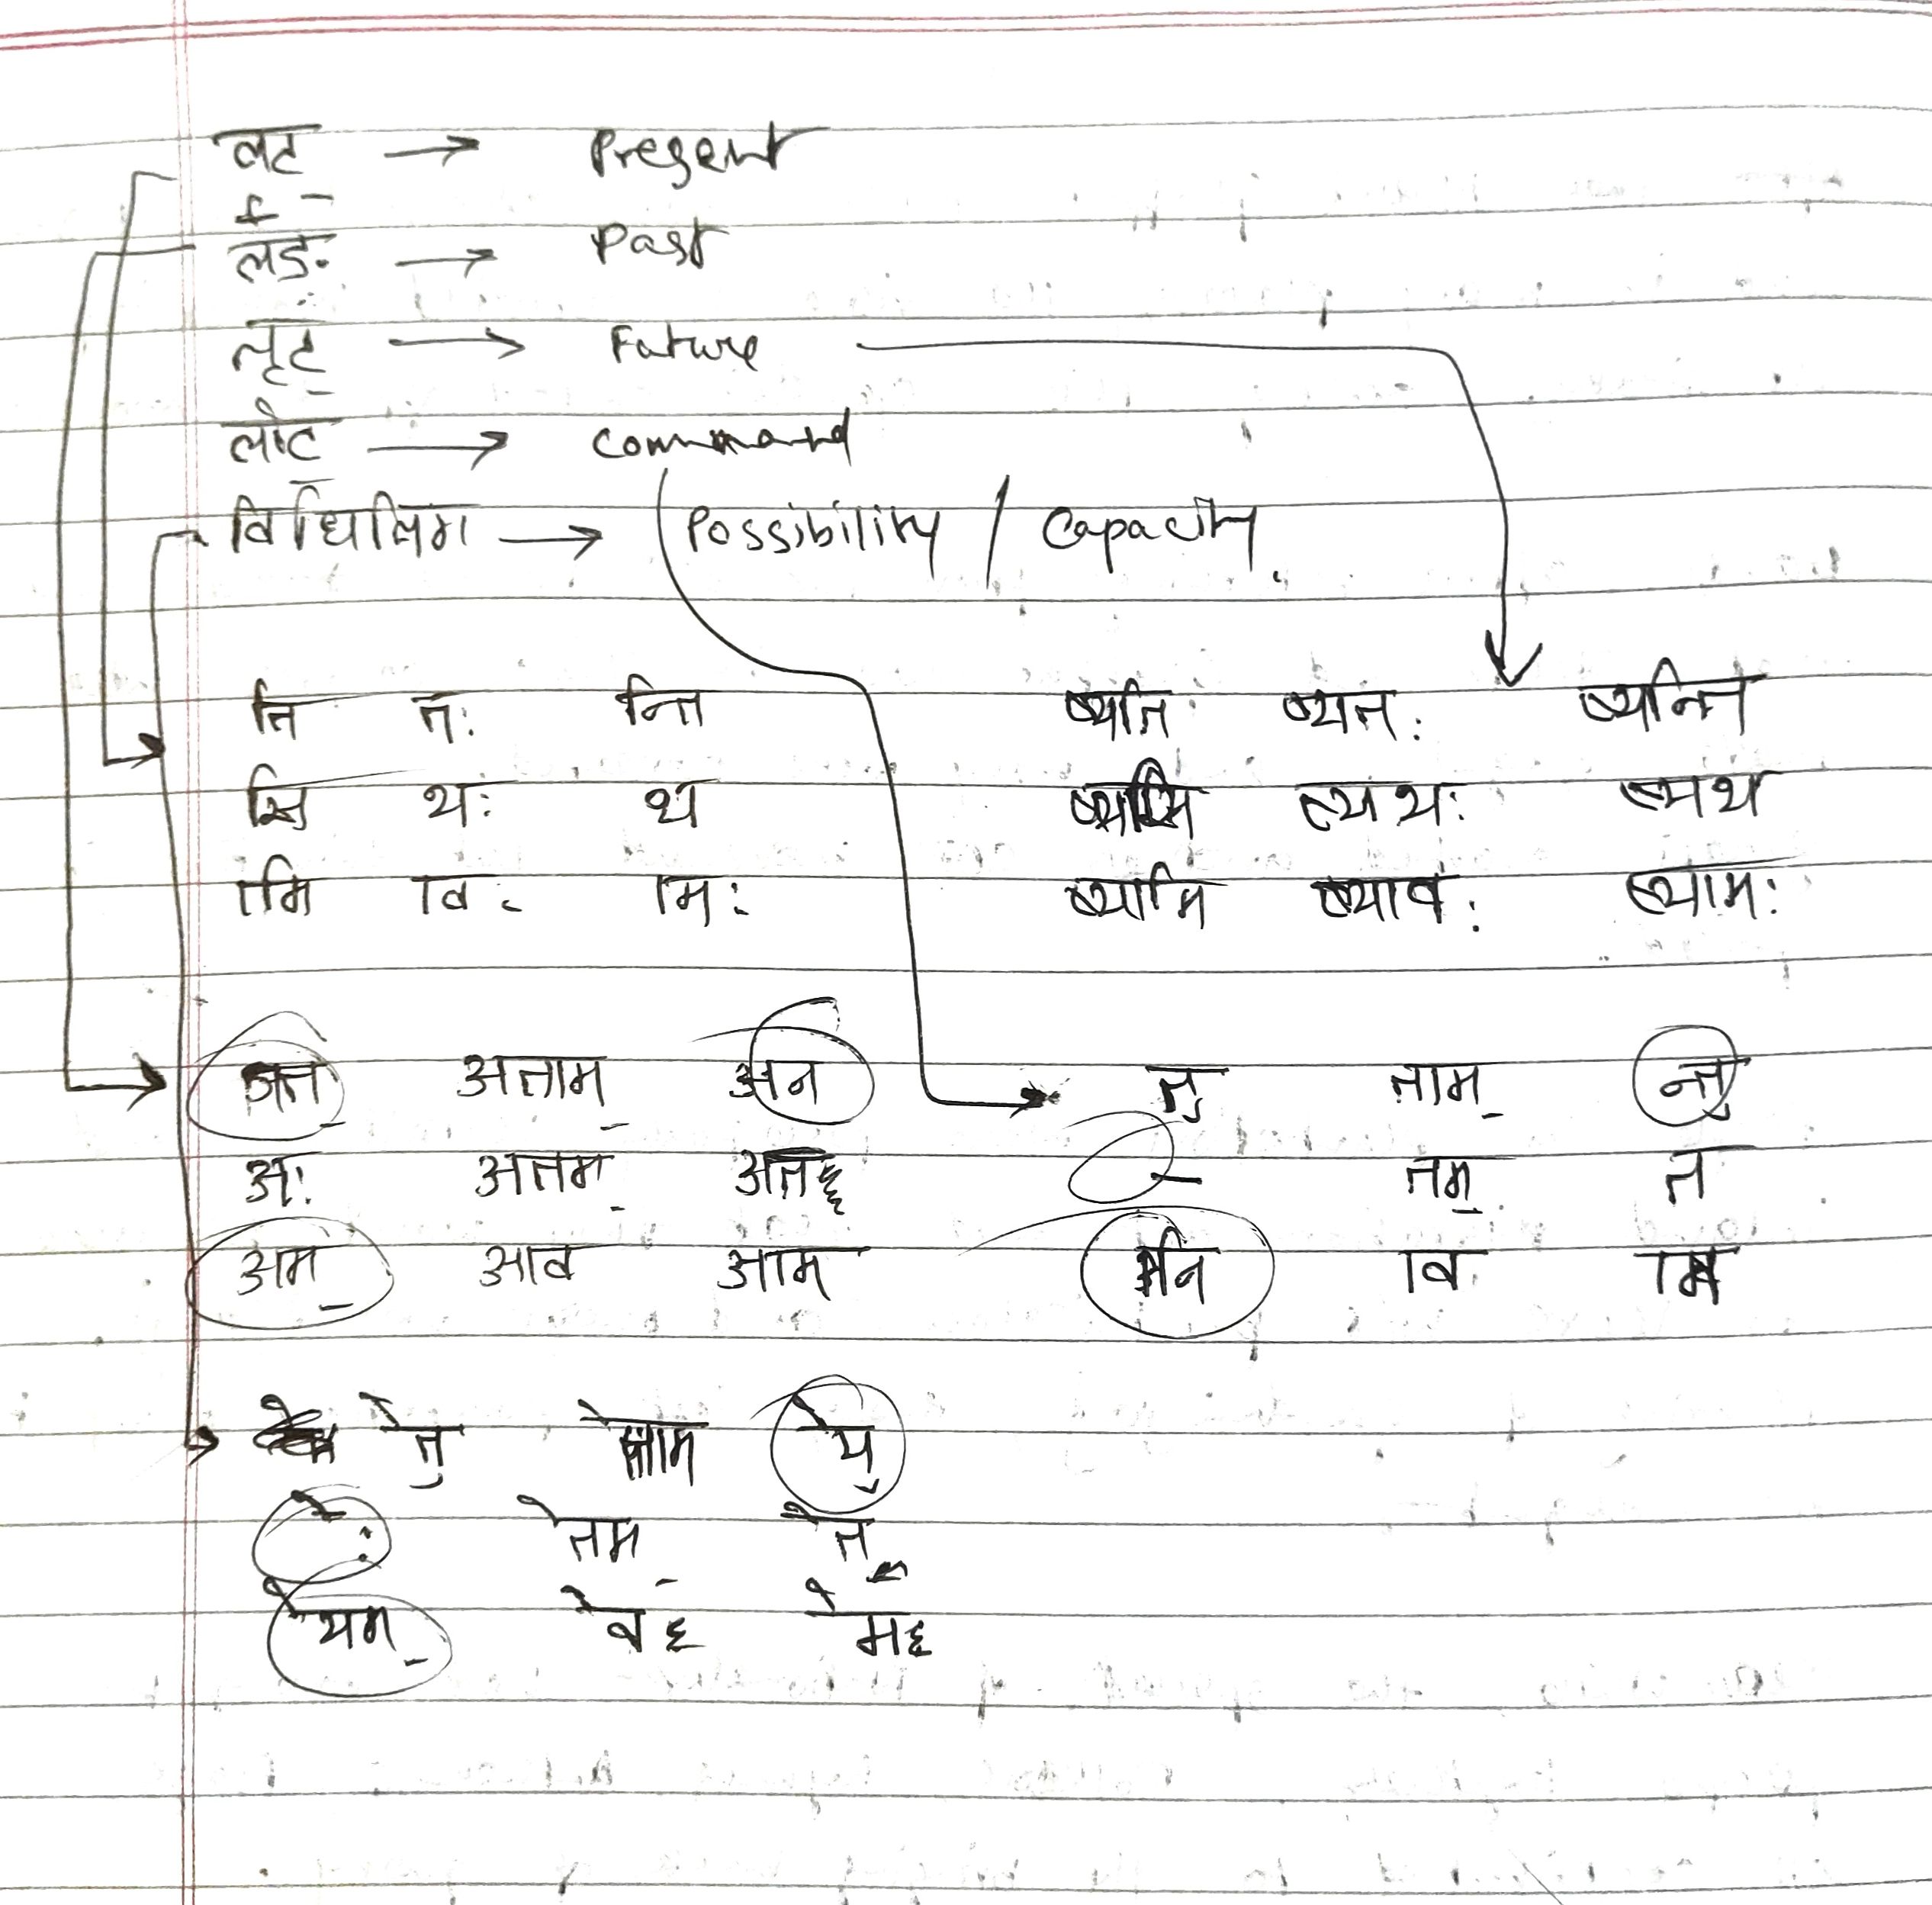 लट् → Present
लङ् → Past
लृट् → Future
लोट् → Command
विधिलिग → Possibility / Capacity.
ति तः न्ति ष्यति ष्यतः ष्यन्ति
सि थः थ ष्यसि ष्यथः ष्यथ
ामि ावः ामः ष्यामि ष्यावः ष्यामः
अत् अताम् अन तु ताम् न्तु
अः अतम् अत - तम् त
अम् आव आम ानि ाव ाम
ेतु ेताम ेयु
ेः ेतम् ेत
ेयम् ेव ेम